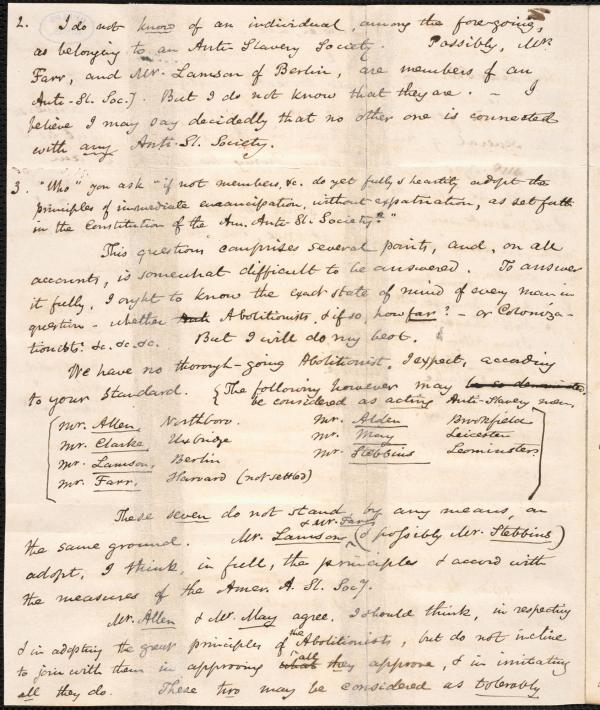 2. I do not know of an individual, among the foregoing,
as belonging to an Anti-Slavery Society. Possibly, Mr.
Farr, and Mr. Lamson of Berlin, are members of an
Anti-Sl. Soc.y. But I do not know that they are. - I
believe I may say decidedly that no other one is connected
with any Anti-Sl. Society.
3. "Who" you ask "if not members, &c. do yet fully & heartily adopt the
principles of immediate emancipation, without expatriation, as set forth
in the Constitution of the Am. Anti-Sl. Society?"
This question comprises several points, and, on all
accounts, is somewhat difficult to be answered. To answer
it fully, I ought to know the exact state of mind of every man in
question - whether Abolitionists, & if so, how far? - or Coloniza-
tionists: &c. &c. &c. But I will do my best.
We have no thorough-going Abolitionist, I expect, according
to your standard. {The following however may be so denominated
be considered as acting Anti-Slavery men.
Mr. Allen, Northboro. Mr. Alden Brookfield
Mr. Clarke, Uxbridge Mr. May Leicester
Mr. Lamson, Berlin Mr. Stebbins Leominster
Mr. Farr, Harvard (not settled)
These seven do not stand by any means, on
the same ground. Mr. Lamson & Mr. Farr (& possibly Mr. Stebbins)
adopt, I think, in full, the principles & accord with
the measures of the Amer. A. Sl. Soc.y.
Mr. Allen & Mr. May agree, I should think, in respecting
& in adopting the great principles of the Abolitionists, but do not incline
to join with them in approving all what they approve, & in imitating
all they do. These two may be considered as tolerably